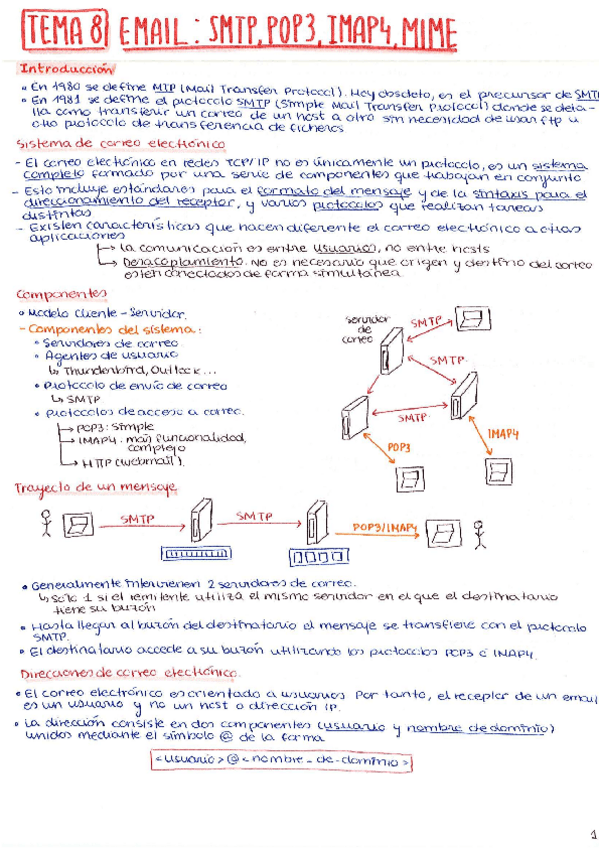 TEMA 8 EMAIL: SMTP, POP3, IMAP4, MIME
Introducción
• En 1980 se define MTP (Mail Transfer Protocol). Hoy obsoleto, es el precursor de SMTP
• En 1981 se define el protocolo SMTP (Simple Mail Transfer Protocol) donde se deta-
lla como transferir un correo de un host a otro sin necesidad de usar ftp u
otro protocolo de transferencia de ficheros
Sistema de correo electrónico
- El correo electrónico en redes TCP/IP no es únicamente un protocolo, es un sistema
completo formado por una serie de componentes que trabajan en conjunto
- Esto incluye estándares para el formato del mensaje y de la sintaxis para el
direccionamiento del receptor, y varios protocolos que realizan tareas
distintas
- Existen características que hacen diferente el correo electrónico a otras
aplicaciones
→ la comunicación es entre usuarios, no entre hosts
→ Desacoplamiento. No es necesario que origen y destino del correo
estén conectados de forma simultánea
Componentes
• Modelo Cliente-Servidor.
- Componentes del sistema:
• Servidores de correo
• Agentes de usuario
↳ Thunderbird, Outlook...
• Protocolo de envío de correo
↳ SMTP
• Protocolos de acceso a correo.
→ POP3: simple
→ IMAP4: más funcionalidad,
complejo
→ HTTP (webmail).
servidor
de
correo
SMTP
SMTP
SMTP
POP3
IMAP4
Trayecto de un mensaje
SMTP
SMTP
POP3/IMAP4
• Generalmente intervienen 2 servidores de correo.
↳ Sólo 1 si el remitente utiliza el mismo servidor en el que el destinatario
tiene su buzón
• Hasta llegar al buzón del destinatario el mensaje se transfiere con el protocolo
SMTP.
• El destinatario accede a su buzón utilizando los protocolos POP3 o IMAP4.
Direcciones de correo electrónico.
• El correo electrónico es orientado a usuarios Por tanto, el receptor de un email
es un usuario y no un host o dirección IP.
• La dirección consiste en dos componentes (usuario y nombre de dominio)
unidos mediante el símbolo @ de la forma
<usuario>@<nombre_de-dominio>
1